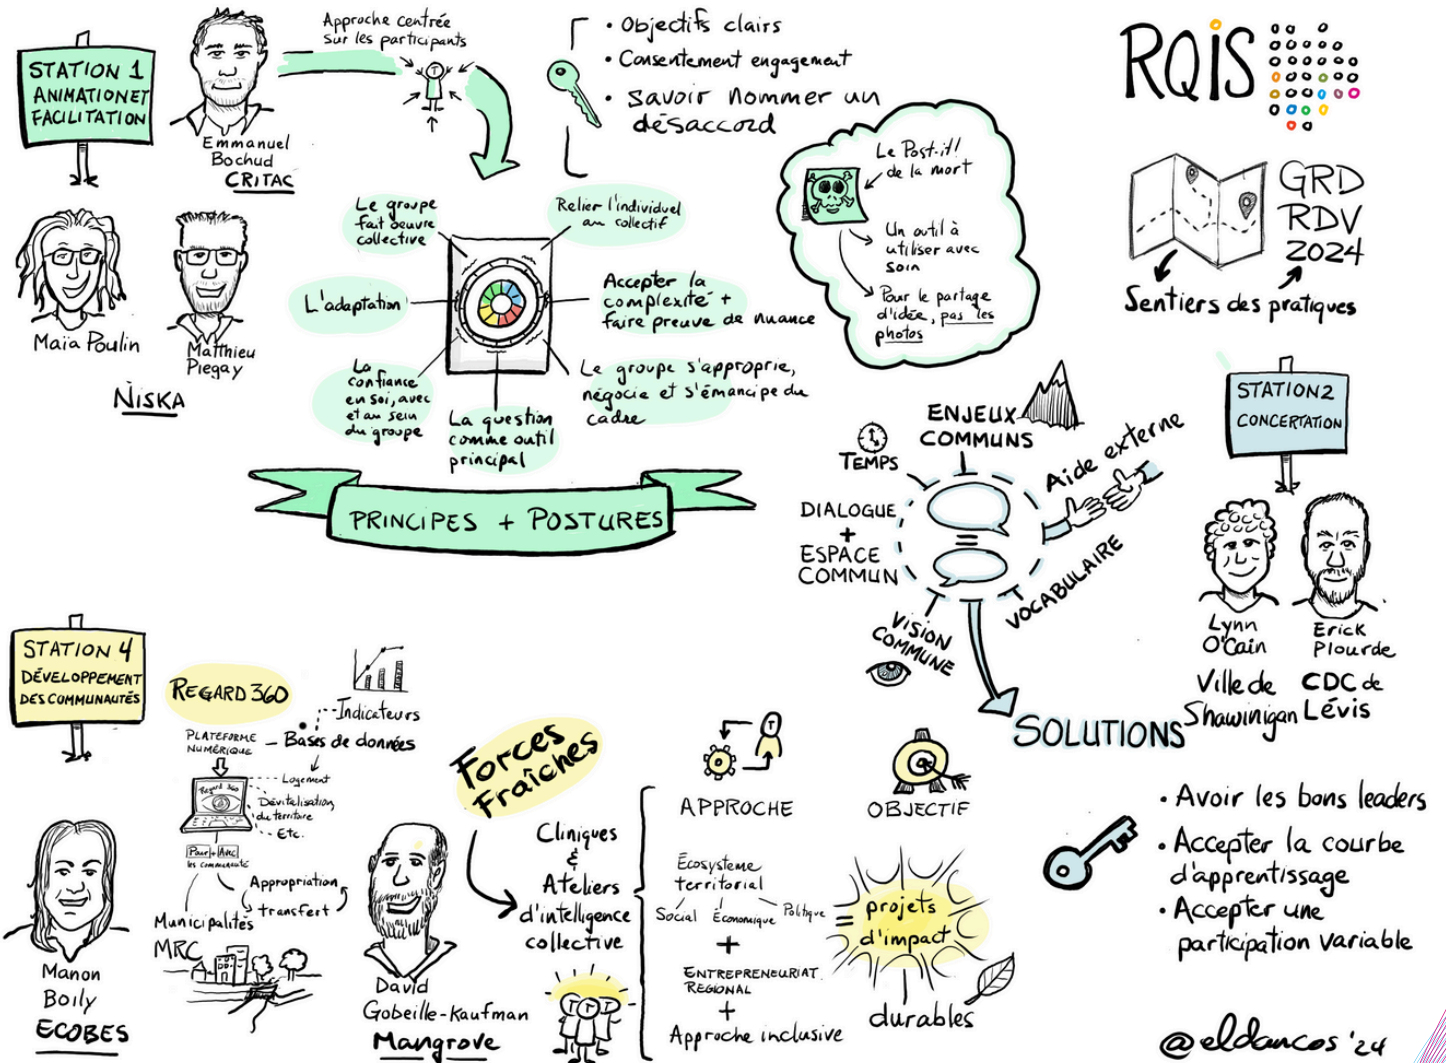 STATION 1
ANIMATION ET
FACILITATION
Emmanuel
Bochud
CRITAC
Maïa Poulin
Matthieu
Piegay
NISKA
Approche centrée
sur les participants
T
• Objectifs clairs
• Consentement engagement
• Savoir nommer un
désaccord
Le groupe
fait oeuvre
collective
Relier l'individuel
au collectif
L'adaptation
Accepter la
complexité +
faire preuve de nuance
La
confiance
en soi, avec
et au sein
du groupe
La question
comme outil
principal
Le groupe s'approprie,
négocie et s'émancipe du
cadre
PRINCIPES + POSTURES
Le Post-it!
de la mort
Un outil à
utiliser avec
soin
Pour le partage
d'idée, pas les
photos
RQIS
GRD
RDV
2024
Sentiers des pratiques
STATION 2
CONCERTATION
Lynn
O'Cain
Ville de
Shawinigan
Erick
Plourde
CDC de
Lévis
ENJEUX
COMMUNS
TEMPS
Aide externe
DIALOGUE
+
ESPACE
COMMUN
=
VOCABULAIRE
VISION
COMMUNE
SOLUTIONS
• Avoir les bons leaders
• Accepter la courbe
d'apprentissage
• Accepter une
participation variable
STATION 4
DÉVELOPPEMENT
DES COMMUNAUTÉS
Manon
Boily
ECOBES
REGARD 360
PLATEFORME
NUMÉRIQUE
Indicateurs
Bases de données
Regard 360
Logement
Dévitalisation
du territoire
Etc.
Pour + Avec
les communauté
Appropriation
transfert
Municipalités
MRC
David
Gobeille-Kaufman
Mangrove
Forces
Fraîches
Cliniques
&
Ateliers
d'intelligence
collective
T T T
T
APPROCHE
OBJECTIF
Écosysteme
territorial
Social Économique Politique
+
ENTREPRENEURIAT
RÉGIONAL
+
Approche inclusive
=
projets
d'impact
durables
@eldancos '24